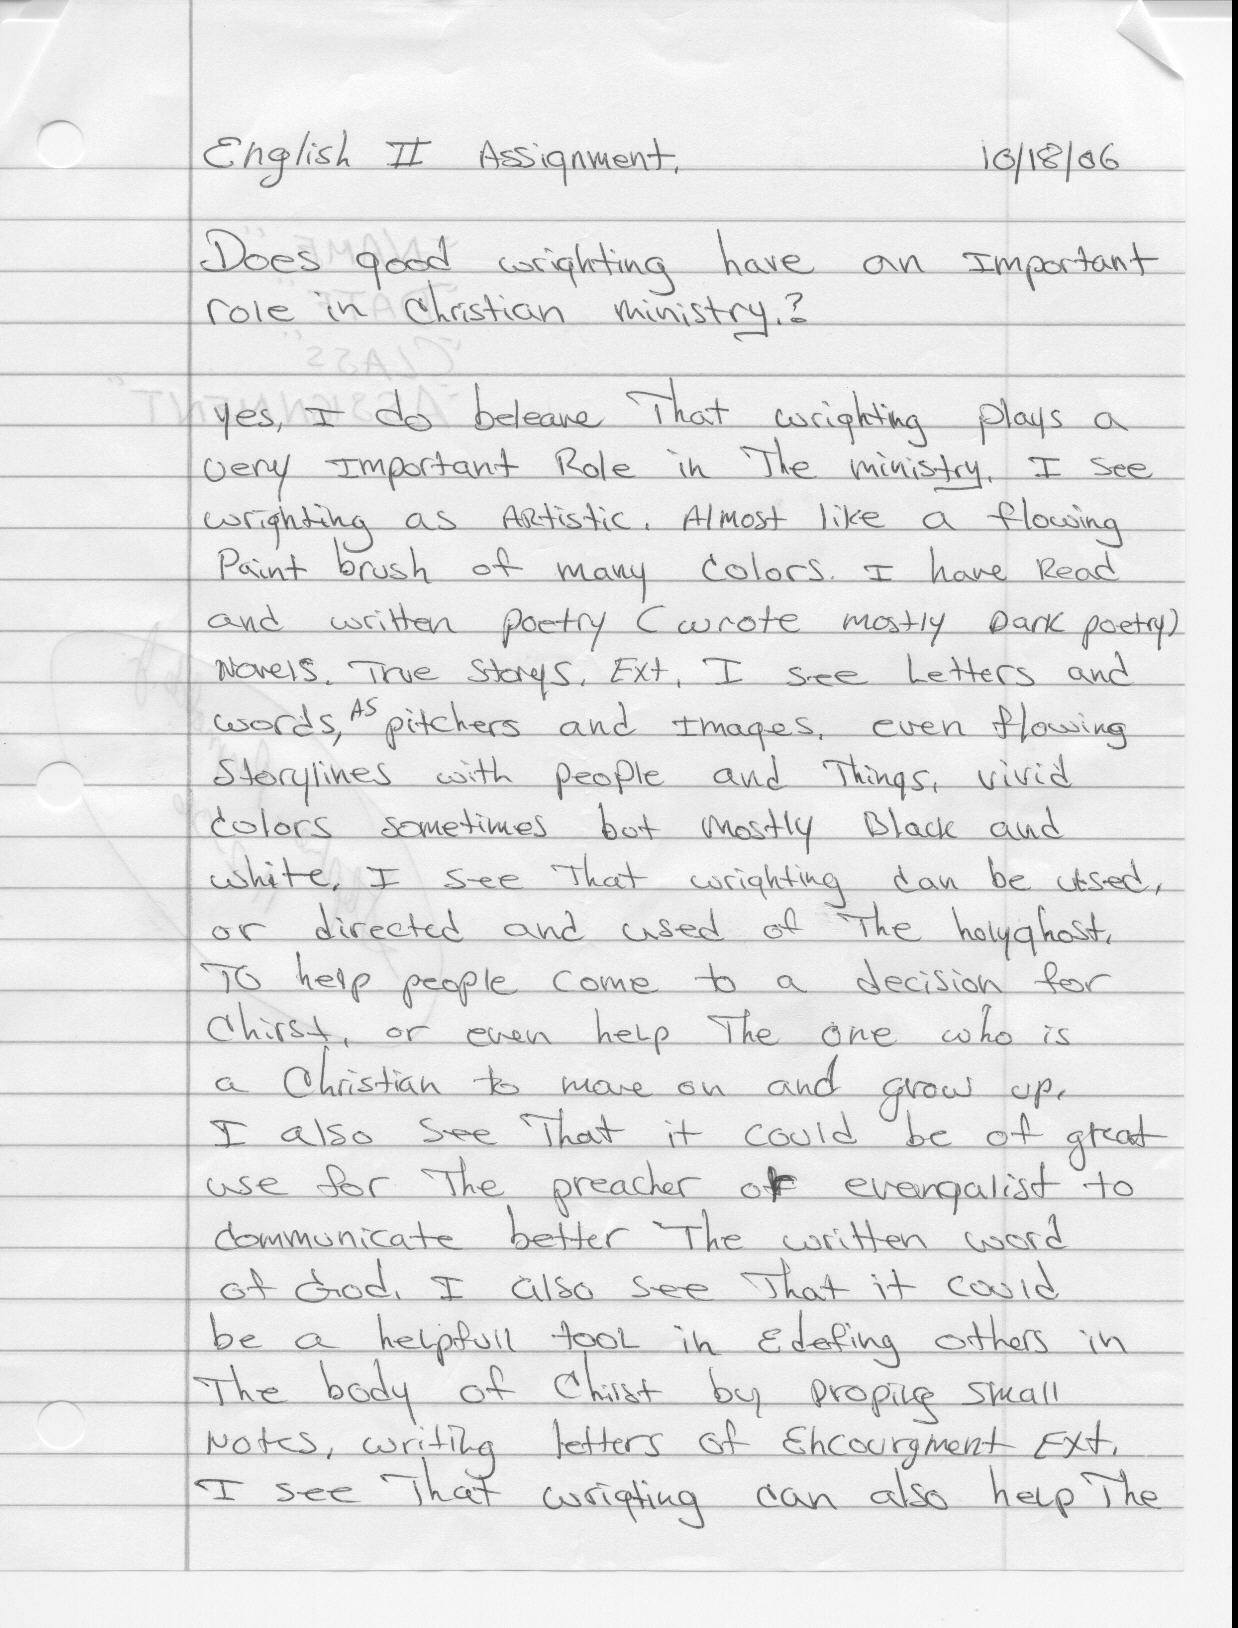 English II Assignment. 10/18/06
Does good wrighting have an Important
role in Christian ministry.?
yes, I do beleave That wrighting plays a
very Important Role in The ministry. I see
wrighting as ARtistic. Almost like a flowing
Paint brush of many colors. I have Read
and written poetry (wrote mostly Dark poetry)
Novels. True Storys. Ext. I see Letters and
words, AS pitchers and Images. even flowing
Storylines with people and Things, vivid
colors sometimes but mostly Black and
white. I see That wrighting can be used,
or directed and used of The holyghost.
To help people come to a decision for
Chirst, or even help The one who is
a Christian to move on and grow up.
I also see That it could be of great
use for The preacher or evangalist to
communicate better The written word
of God. I also see That it could
be a helpfull tool in Edefing others in
The body of Chirst by Droping small
Notes, writing letters of Encourgment Ext.
I see That wrigting can also help The
"NAME"
"DATE"
"CLASS"
"ASSIGNMENT"